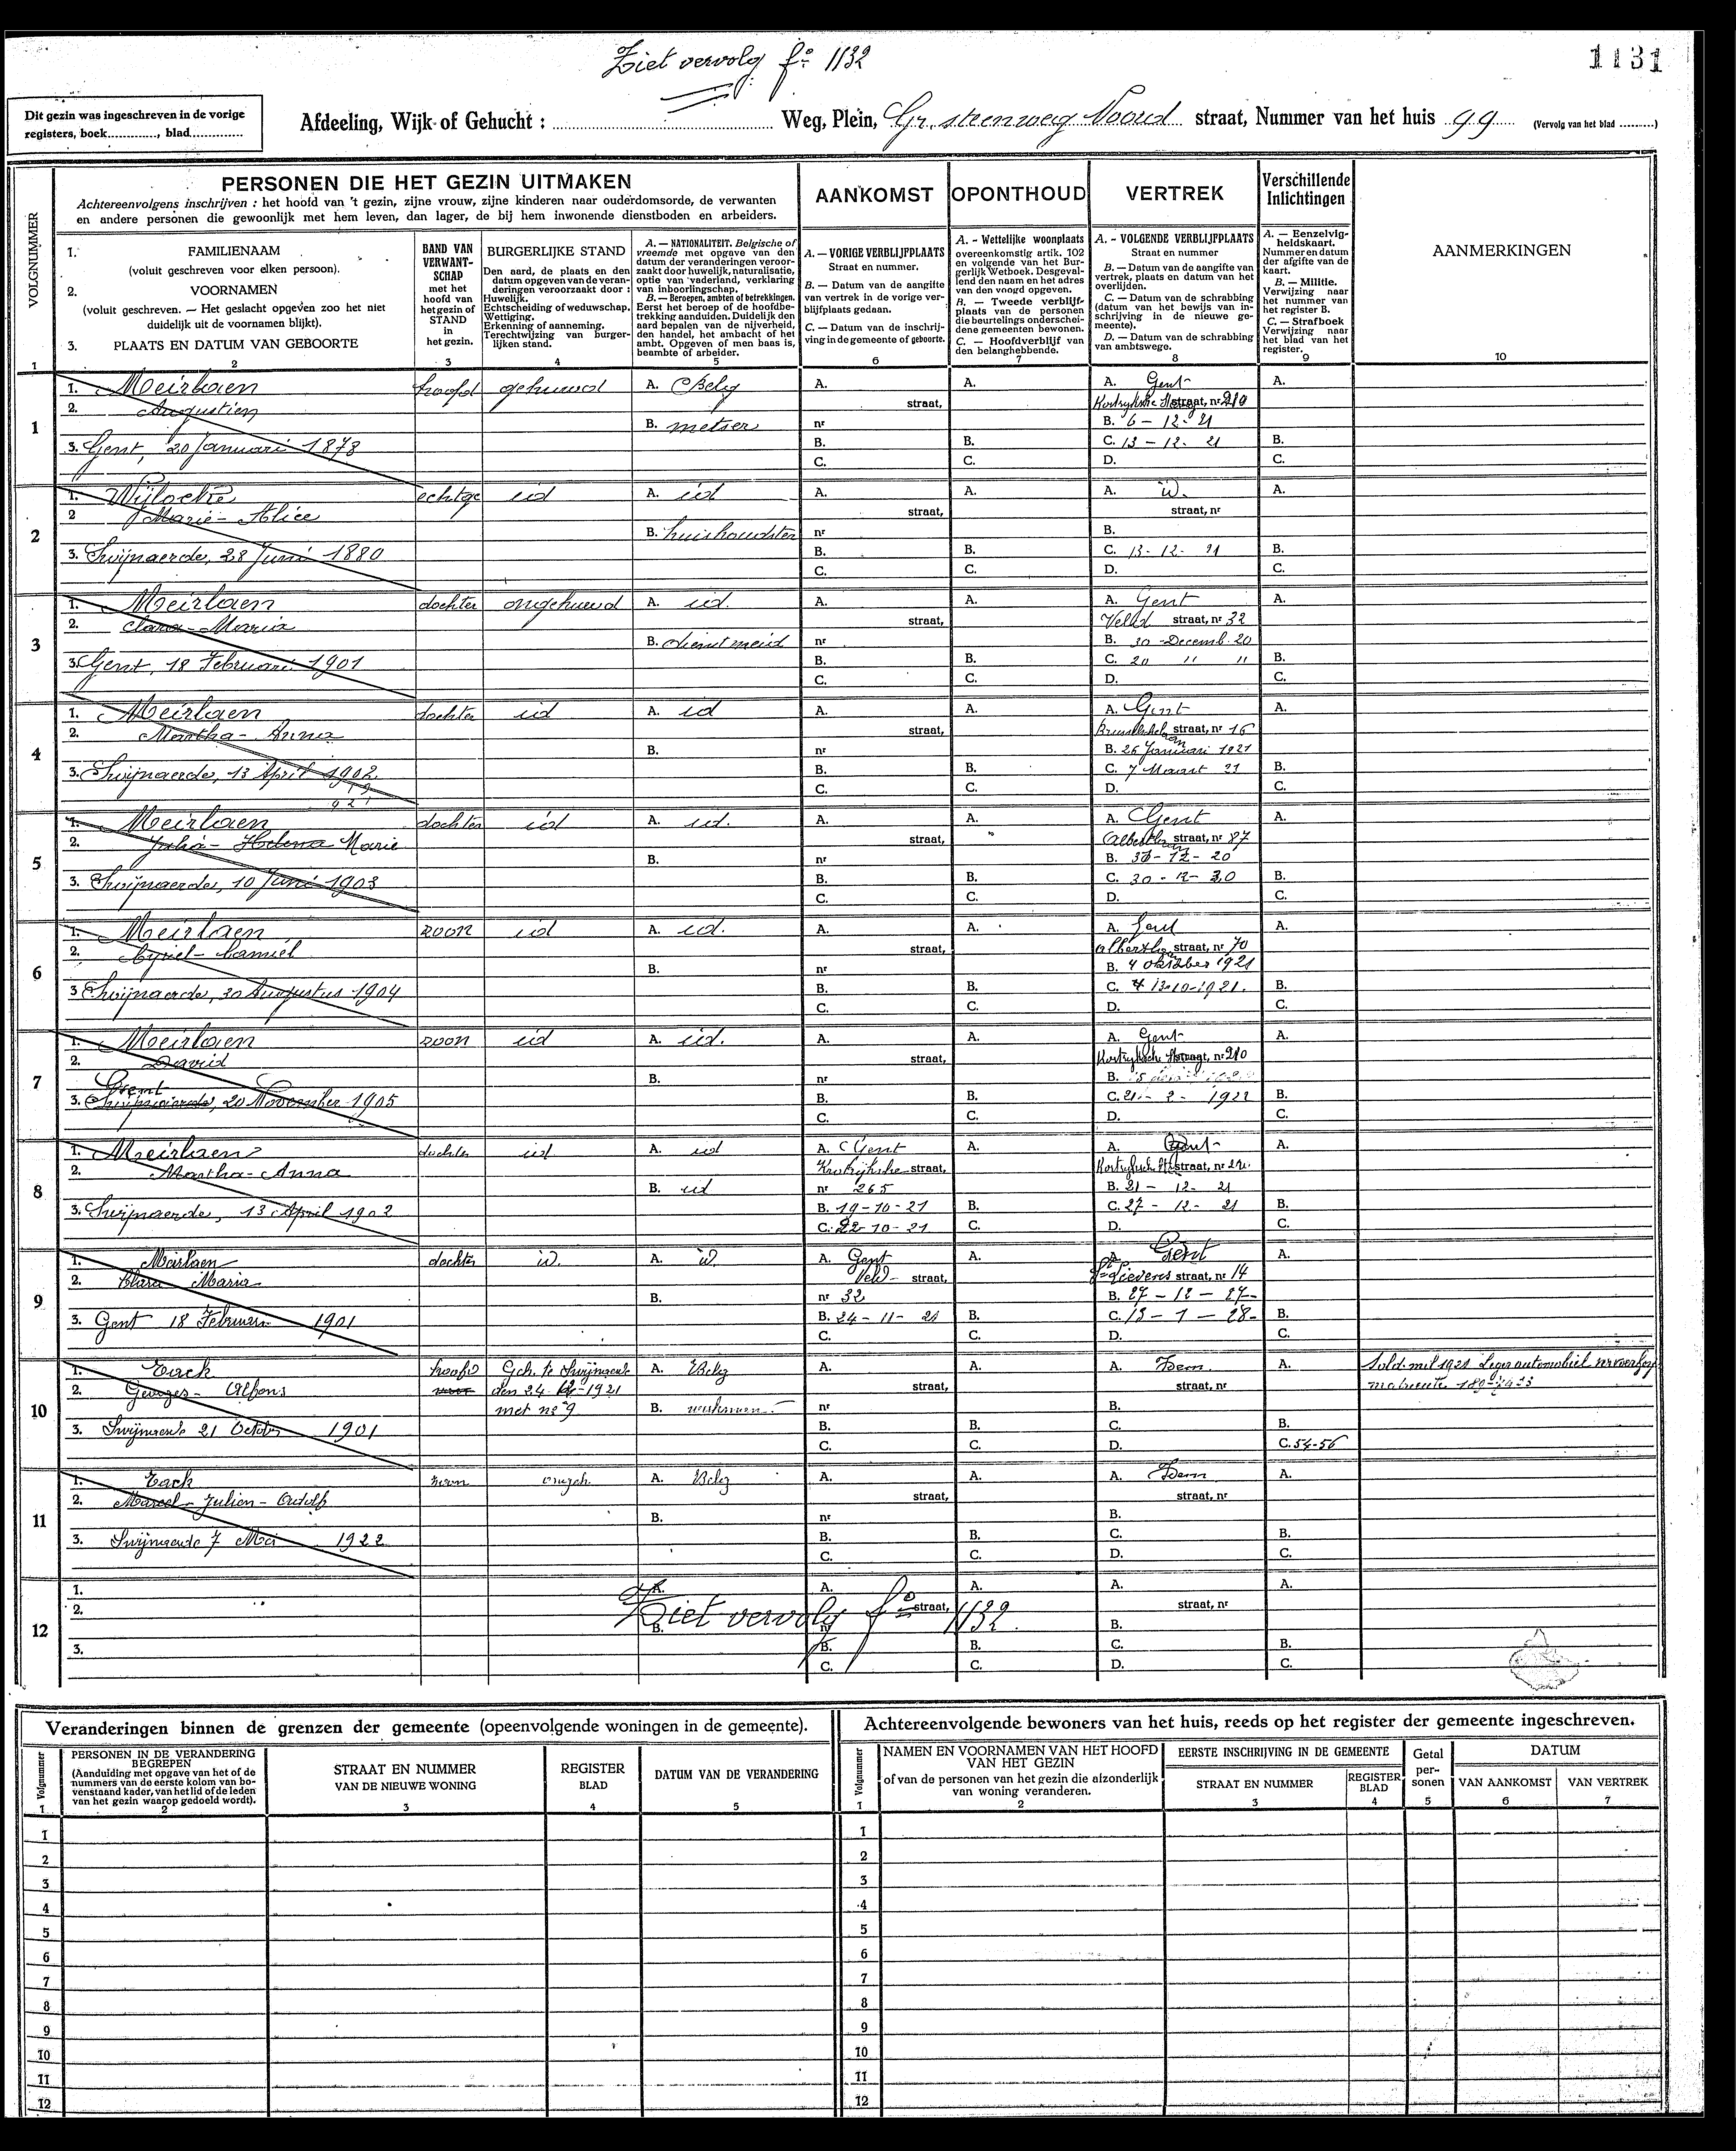 Ziet vervolg fo 1132
1131
Dit gezin was ingeschreven in de vorige
registers, boek............, blad..............
Afdeeling, Wijk of Gehucht : ........ Weg, Plein, Gr. steenweg Noord straat, Nummer van het huis 99 (Vervolg van het blad .........)
VOLGNUMMER
PERSONEN DIE HET GEZIN UITMAKEN
Achtereenvolgens inschrijven : het hoofd van 't gezin, zijne vrouw, zijne kinderen naar ouderdomsorde, de verwanten
en andere personen die gewoonlijk met hem leven, dan lager, de bij hem inwonende dienstboden en arbeiders.
AANKOMST
OPONTHOUD
VERTREK
Verschillende
Inlichtingen
1. FAMILIENAAM
(voluit geschreven voor elken persoon).
2. VOORNAMEN
(voluit geschreven. — Het geslacht opgeven zoo het niet
duidelijk uit de voornamen blijkt).
3. PLAATS EN DATUM VAN GEBOORTE
BAND VAN
VERWANT-
SCHAP
met het
hoofd van
het gezin of
STAND
in
het gezin.
BURGERLIJKE STAND
Den aard, de plaats en den
datum opgeven van de veran-
deringen veroorzaakt door :
Huwelijk.
Echtscheiding of weduwschap.
Wettiging.
Erkenning of aanneming.
Terechtwijzing van burger-
lijken stand.
A. — NATIONALITEIT. Belgische of
vreemde met opgave van den
datum der veranderingen veroor-
zaakt door huwelijk, naturalisatie,
optie van vaderland, verklaring
van inboorlingschap.
B. — Beroepen, ambten of betrekkingen.
Eerst het beroep of de hoofdbe-
trekking aanduiden. Duidelijk den
aard bepalen van de nijverheid,
den handel, het ambacht of het
ambt. Opgeven of men baas is,
beambte of arbeider.
A. — VORIGE VERBLIJFPLAATS
Straat en nummer.
B. — Datum van de aangifte
van vertrek in de vorige ver-
blijfplaats gedaan.
C. — Datum van de inschrij-
ving in de gemeente of geboorte.
A. - Wettelijke woonplaats
overeenkomstig artik. 102
en volgende van het Bur-
gerlijk Wetboek. Desgeval-
lend den naam en het adres
van den voogd opgeven.
B. — Tweede verblijf-
plaats van de personen
die beurtelings onderschei-
dene gemeenten bewonen.
C. — Hoofdverblijf van
den belanghebbende.
A. - VOLGENDE VERBLIJFPLAATS
Straat en nummer
B. — Datum van de aangifte van
vertrek, plaats en datum van het
overlijden.
C. — Datum van de schrabbing
(datum van het bewijs van in-
schrijving in de nieuwe ge-
meente).
D. — Datum van de schrabbing
van ambtswege.
A. — Eenzelvig-
heidskaart.
Nummer en datum
der afgifte van de
kaart.
B. — Militie.
Verwijzing naar
het nummer van
het register B.
C. — Strafboek
Verwijzing naar
het blad van het
register.
AANMERKINGEN
1 2 3 4 5 6 7 8 9 10
1
1. Meirlaen hoofd gehuwd A. Belg A. A. A. Gent A.
2. Augustien straat, Kortrijksche straat, nr 210
B. metser nr B. 6 - 12 - 21
3. Gent, 20 Januari 1873 B. B. C. 13 - 12 - 21 B.
C. C. D. C.
2
1. Wijlocke echtge id A. id A. A. A. id. A.
2 Marie - Alice straat, straat, nr
B. huishoudster nr B.
3. Swijnaerde, 28 Juni 1880 B. B. C. 13 - 12 - 21 B.
C. C. D. C.
3
1. Meirlaen dochter ongehuwd A. id. A. A. A. Gent A.
2. Clara - Maria straat, Veld straat, nr 32
B. dienstmeid nr B. 30 - Decemb. 20
3. Gent, 18 Februari 1901 B. B. C. 20 " " B.
C. C. D. C.
4
1. Meirlaen dochter id A. id A. A. A. Gent A.
2. Martha - Anna straat, straat, nr 16
B. nr B. 26 Januari 1921
3. Swijnaerde, 13 April 1902 B. B. C. 7 Maart 21 B.
C. C. D. C.
5
1. Meirlaen dochter id A. id. A. A. A. Gent A.
2. Julia - Helena Marie straat, Albertlaan straat, nr 87
B. nr B. 30 - 12 - 20
3. Swijnaerde, 10 Juni 1903 B. B. C. 30 - 12 - 20 B.
C. C. D. C.
6
1. Meirlaen zoon id A. id. A. A. A. Gent A.
2. Cyriel - Camiel straat, Albertlaan straat, nr 70
B. nr B. 4 oktober 1921
3 Swijnaerde, 30 Augustus 1904 B. B. C. 13-10-1921. B.
C. C. D. C.
7
1. Meirlaen zoon id A. id. A. A. A. Gent A.
2. David straat, Kortrijksche straat, nr 210
Gent B. nr B.
3. Swijnaerde, 20 November 1905 B. B. C. 21 - 2 - 1922 B.
C. C. D. C.
8
1. Meirlaen dochter id A. id A. Gent A. A. Gent A.
2. Martha - Anna Kortrijksche straat, Kortrijksche straat, nr 210.
B. id nr 265 B. 21 - 12 - 21
3. Swijnaerde, 13 April 1902 B. 19-10-21 B. C. 27 - 12 - 21 B.
C. 22-10-21 C. D. C.
9
1. Meirlaen dochter id. A. id. A. Gent A. A. Gent A.
2. Clara Maria Veld - straat, St Lievens straat, nr 14
B. nr 32 B. 27 - 12 - 27 -
3. Gent 18 Februari 1901 B. 24 - 11 - 21 B. C. 13 - 1 - 28 - B.
C. C. D. C.
10
1. Tack hoofd Geh. te Swijnaerde A. Belg A. A. A. Idem A. Sold. mil 1921 Leger automobiel vervoerkorps
2. Georges - Alfons den 24 - 12 - 1921 straat, straat, nr
met no 9 B. werkman nr B.
3. Swijnaerde 21 October 1901 B. B. C. B.
C. C. D. C. 54-56
11
1. Tack zoon ongeh. A. Belg A. A. A. Idem A.
2. Marcel - Julien - Odolf straat, straat, nr
B. nr B.
3. Swijnaerde 7 Mei 1922 B. B. C. B.
C. C. D. C.
12
1. A. A. A. A. A.
2. Ziet vervolg fo straat, 1132. straat, nr
B. nr B.
3. B. B. C. B.
C. C. D. C.
Veranderingen binnen de grenzen der gemeente (opeenvolgende woningen in de gemeente).
Volgnummer
PERSONEN IN DE VERANDERING
BEGREPEN
(Aanduiding met opgave van het of de
nummers van de eerste kolom van bo-
venstaand kader, van het lid of de leden
van het gezin waarop gedoeld wordt).
STRAAT EN NUMMER
VAN DE NIEUWE WONING
REGISTER
BLAD
DATUM VAN DE VERANDERING
1 2 3 4 5
1
2
3
4
5
6
7
8
9
10
11
12
Achtereenvolgende bewoners van het huis, reeds op het register der gemeente ingeschreven.
Volgnummer
NAMEN EN VOORNAMEN VAN HET HOOFD
VAN HET GEZIN
of van de personen van het gezin die afzonderlijk
van woning veranderen.
EERSTE INSCHRIJVING IN DE GEMEENTE
STRAAT EN NUMMER
REGISTER
BLAD
Getal
per-
sonen
DATUM
VAN AANKOMST
VAN VERTREK
1 2 3 4 5 6 7
1
2
3
4
5
6
7
8
9
10
11
12